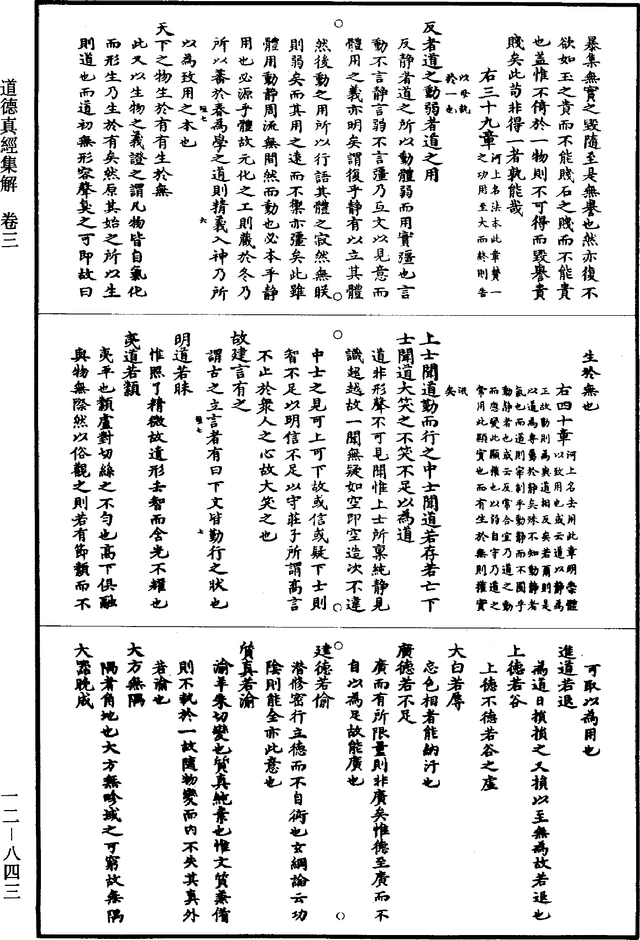 道德真經集解　卷三
一二－八四三
暴集無實之毀隨至是無譽也然亦復不
欲如玉之貴而不能賤石之賤而不能貴
也蓋惟不倚於一物則不可得而毀譽貴
賤矣此苟非得一者孰能哉
右三十九章河上名法本此章贊一
之功用至大而終則告
以毋執
於一也
反者道之動弱者道之用
反靜者道之所以動體弱而用實彊也言
動不言靜言弱不言彊乃互文以見意而
體用之義亦明矣謂復乎靜有以立其體
然後動之用所以行語其體之寂然無眹
則弱矣而其用之遠而不禦亦彊矣此雖
體用動靜周流無間然而動也必本乎靜
用也必源乎體故元化之工則藏於冬乃
所以蕃於春為學之道則精義入神乃所
以為致用之本也
天下之物生於有有生於無
此又以生物之義證之謂凡物皆自氣化
而形生乃生於有矣然原其始之所以生
則道也而道初無形容聲臭之可即故曰
生於無也
右四十章河上名去用此章明崇體
以致用也或云道以靜為
正故動則為與道相反矣若爾則是
以道為專屬於靜矣殊不知動靜者
氣也而道則宰制乎動靜而不囿乎
動靜者也或云反常合宜乃道之動
而應變此顯權也以弱自守乃道之
常用此顯實也而有生於無則權實
泯
矣
上士聞道勤而行之中士聞道若存若亡下
士聞道大笑之不笑不足以為道
道非形聲不可見聞惟上士所稟純靜見
識超越故一聞無疑如空即空造次不違
中士之見可上可下故或信或疑下士則
智不足以明信不足以守莊子所謂高言
不止於衆人之心故大笑之也
故建言有之
謂古之立言者有曰下文皆勤行之狀也
明道若昧
惟照了精微故遺形去智而含光不耀也
夷道若纇
夷平也纇盧對切絲之不勻也高下俱融
與物無際然以俗觀之則若有節纇而不
可取以為用也
進道若退
為道日損損之又損以至無為故若退也
上德若谷
上德不德若谷之虛
大白若辱
忘色相者能納汙也
廣德若不足
廣而有所限量則非廣矣惟德至廣而不
自以為足故能廣也
建德若偷
潛修密行立德而不自衒也玄綱論云功
陰則能全亦此意也
質真若渝
渝羊朱切變也質真純素也惟文質兼備
則不執於一故隨物變而內不失其真外
若渝也
大方無隅
隅者角地也大方無畛域之可窮故無隅
大器晚成